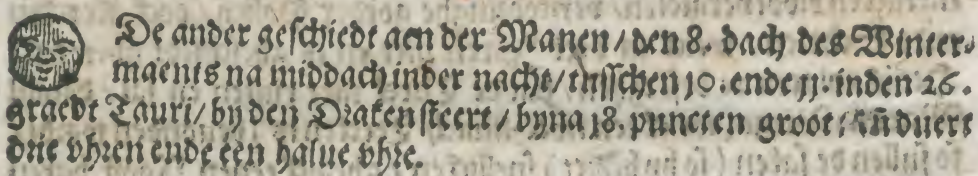 De ander geschiedt aen der Manen / den 8. dach des Winter-
maents na middach inder nacht / tusschen 10. ende 11. inden 26.
graedt Tauri / by den Drakensteert / byna 18. puncten groot / vñ duert
drie vhren ende een halue vhre.